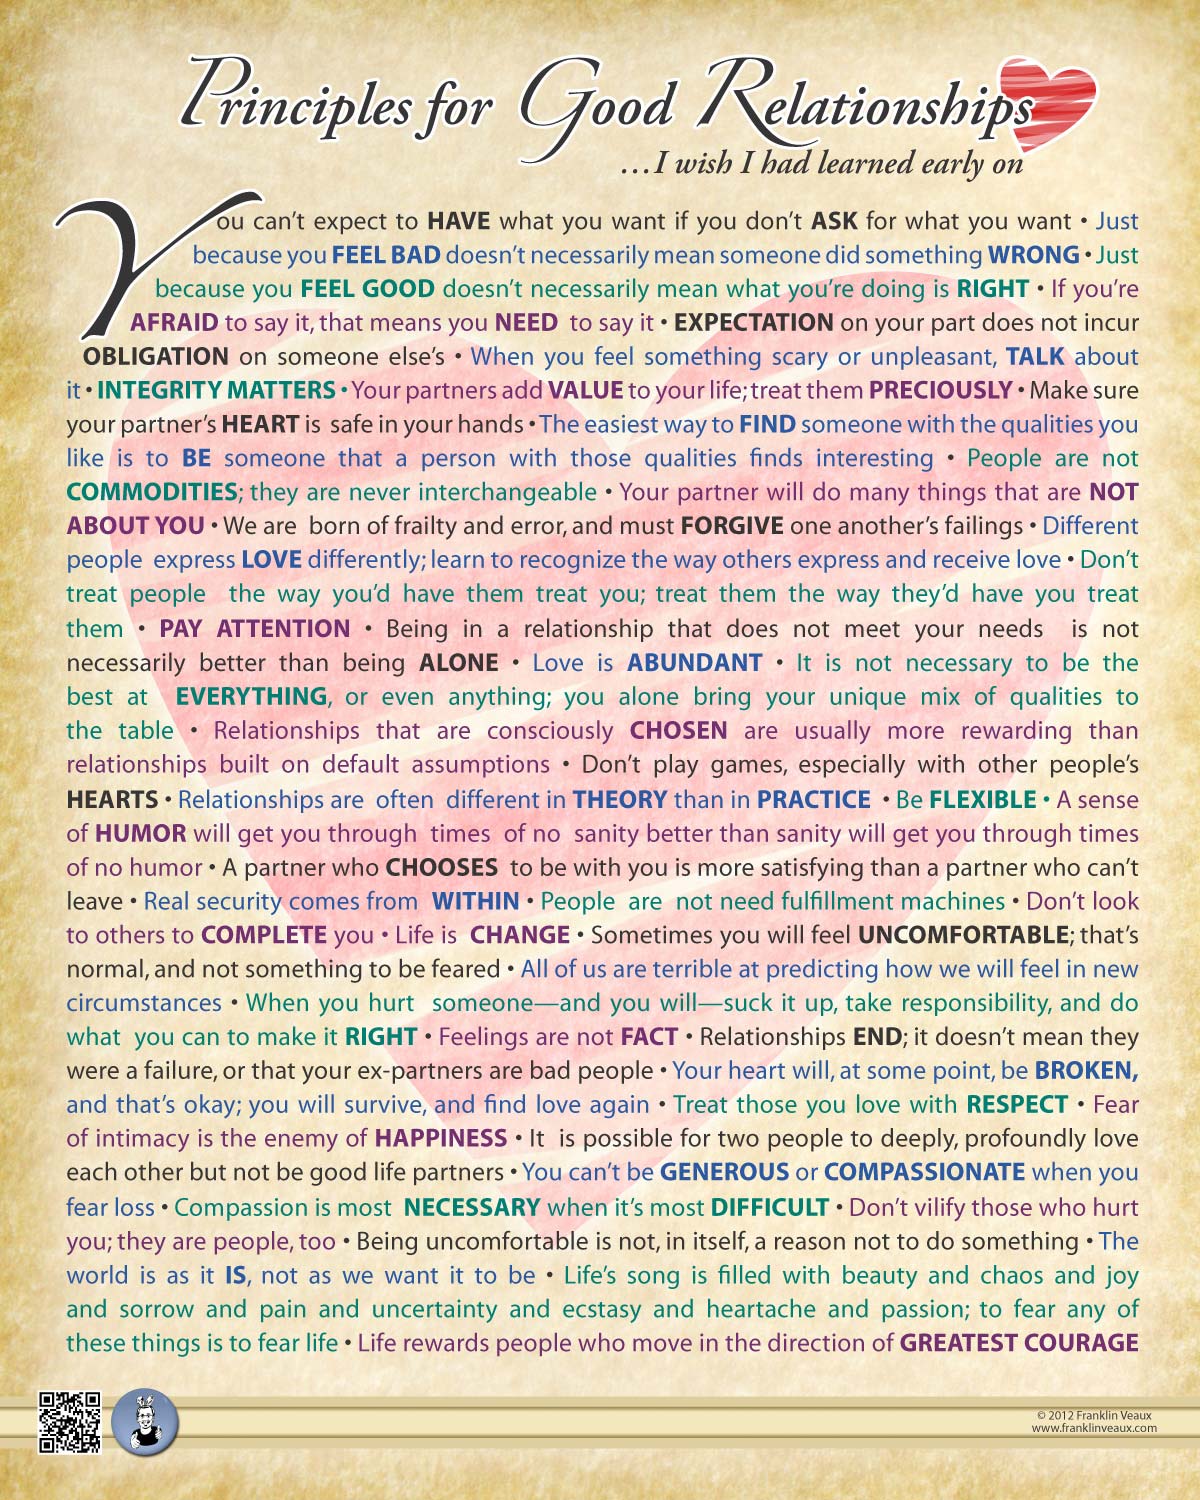 Principles for Good Relationships
...I wish I had learned early on
You can't expect to HAVE what you want if you don't ASK for what you want • Just
because you FEEL BAD doesn't necessarily mean someone did something WRONG • Just
because you FEEL GOOD doesn't necessarily mean what you're doing is RIGHT • If you're
AFRAID to say it, that means you NEED to say it • EXPECTATION on your part does not incur
OBLIGATION on someone else's • When you feel something scary or unpleasant, TALK about
it • INTEGRITY MATTERS • Your partners add VALUE to your life; treat them PRECIOUSLY • Make sure
your partner's HEART is safe in your hands • The easiest way to FIND someone with the qualities you
like is to BE someone that a person with those qualities finds interesting • People are not
COMMODITIES; they are never interchangeable • Your partner will do many things that are NOT
ABOUT YOU • We are born of frailty and error, and must FORGIVE one another's failings • Different
people express LOVE differently; learn to recognize the way others express and receive love • Don't
treat people the way you'd have them treat you; treat them the way they'd have you treat
them • PAY ATTENTION • Being in a relationship that does not meet your needs is not
necessarily better than being ALONE • Love is ABUNDANT • It is not necessary to be the
best at EVERYTHING, or even anything; you alone bring your unique mix of qualities to
the table • Relationships that are consciously CHOSEN are usually more rewarding than
relationships built on default assumptions • Don't play games, especially with other people's
HEARTS • Relationships are often different in THEORY than in PRACTICE • Be FLEXIBLE • A sense
of HUMOR will get you through times of no sanity better than sanity will get you through times
of no humor • A partner who CHOOSES to be with you is more satisfying than a partner who can't
leave • Real security comes from WITHIN • People are not need fulfillment machines • Don't look
to others to COMPLETE you • Life is CHANGE • Sometimes you will feel UNCOMFORTABLE; that's
normal, and not something to be feared • All of us are terrible at predicting how we will feel in new
circumstances • When you hurt someone—and you will—suck it up, take responsibility, and do
what you can to make it RIGHT • Feelings are not FACT • Relationships END; it doesn't mean they
were a failure, or that your ex-partners are bad people • Your heart will, at some point, be BROKEN,
and that's okay; you will survive, and find love again • Treat those you love with RESPECT • Fear
of intimacy is the enemy of HAPPINESS • It is possible for two people to deeply, profoundly love
each other but not be good life partners • You can't be GENEROUS or COMPASSIONATE when you
fear loss • Compassion is most NECESSARY when it's most DIFFICULT • Don't vilify those who hurt
you; they are people, too • Being uncomfortable is not, in itself, a reason not to do something • The
world is as it IS, not as we want it to be • Life's song is filled with beauty and chaos and joy
and sorrow and pain and uncertainty and ecstasy and heartache and passion; to fear any of
these things is to fear life • Life rewards people who move in the direction of GREATEST COURAGE
© 2012 Franklin Veaux
www.franklinveaux.com